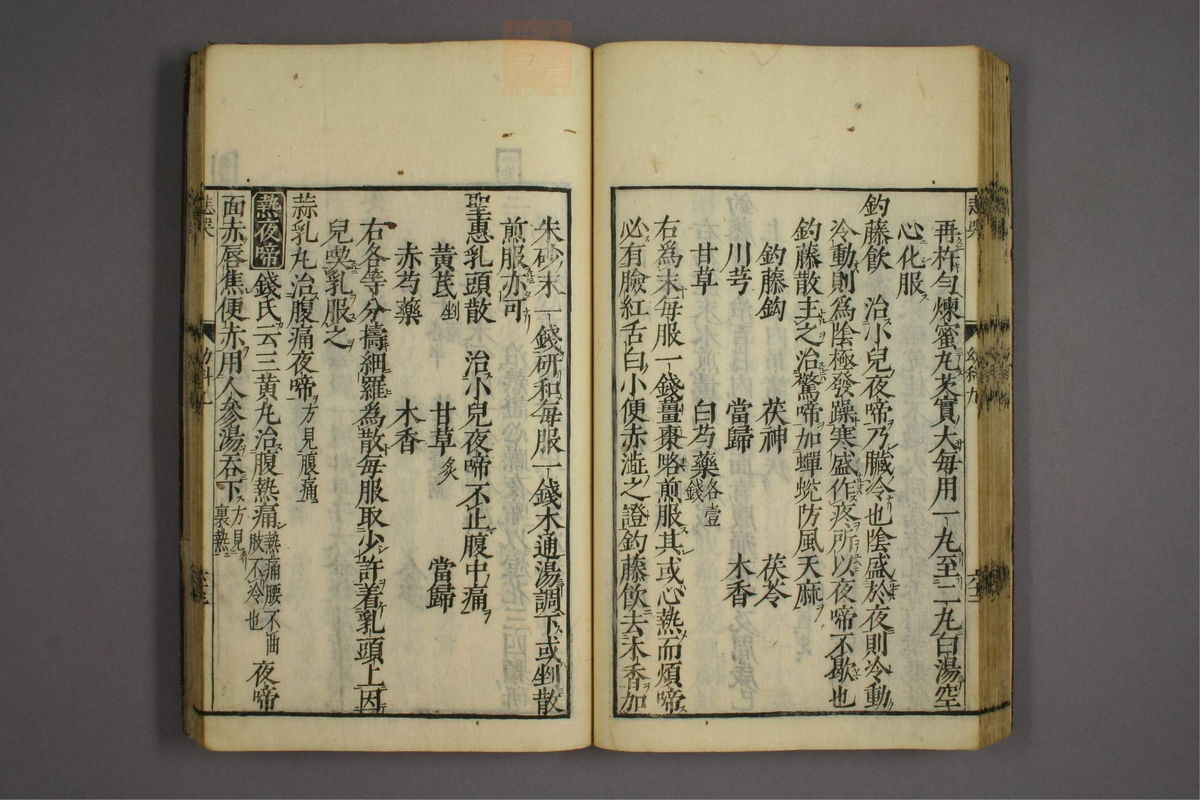 再杵勻煉蜜丸芡實大每用一丸至二丸白湯空
心化服
釣藤飲　治小兒夜啼乃臟冷也陰盛於夜則冷動
冷動則為陰極發躁寒盛作疼所以夜啼不歇也
釣藤散主之治驚啼加蟬蛻防風天麻
釣藤鈎　茯神　茯苓
川芎　當歸　木香
甘草　白芍藥各壹錢
右為末每服一錢薑棗略煎服其或心熱而煩啼
必有臉紅舌白小便赤澁之證釣藤飲去木香加
朱砂末一錢研和每服一錢木通湯調下或剉散
煎服亦可
聖惠乳頭散　治小兒夜啼不止腹中痛
黃芪剉　甘草炙　當歸
赤芍藥　木香
右各等分擣細羅為散每服取少許着乳頭上因
兒喫乳服之
蒜乳丸治腹痛夜啼方見腹痛
熱夜啼　錢氏云三黃丸治腹熱痛熱痛腰不曲肢不冷也夜啼
面赤唇焦便赤用人參湯吞下方見裏熱
幼科九